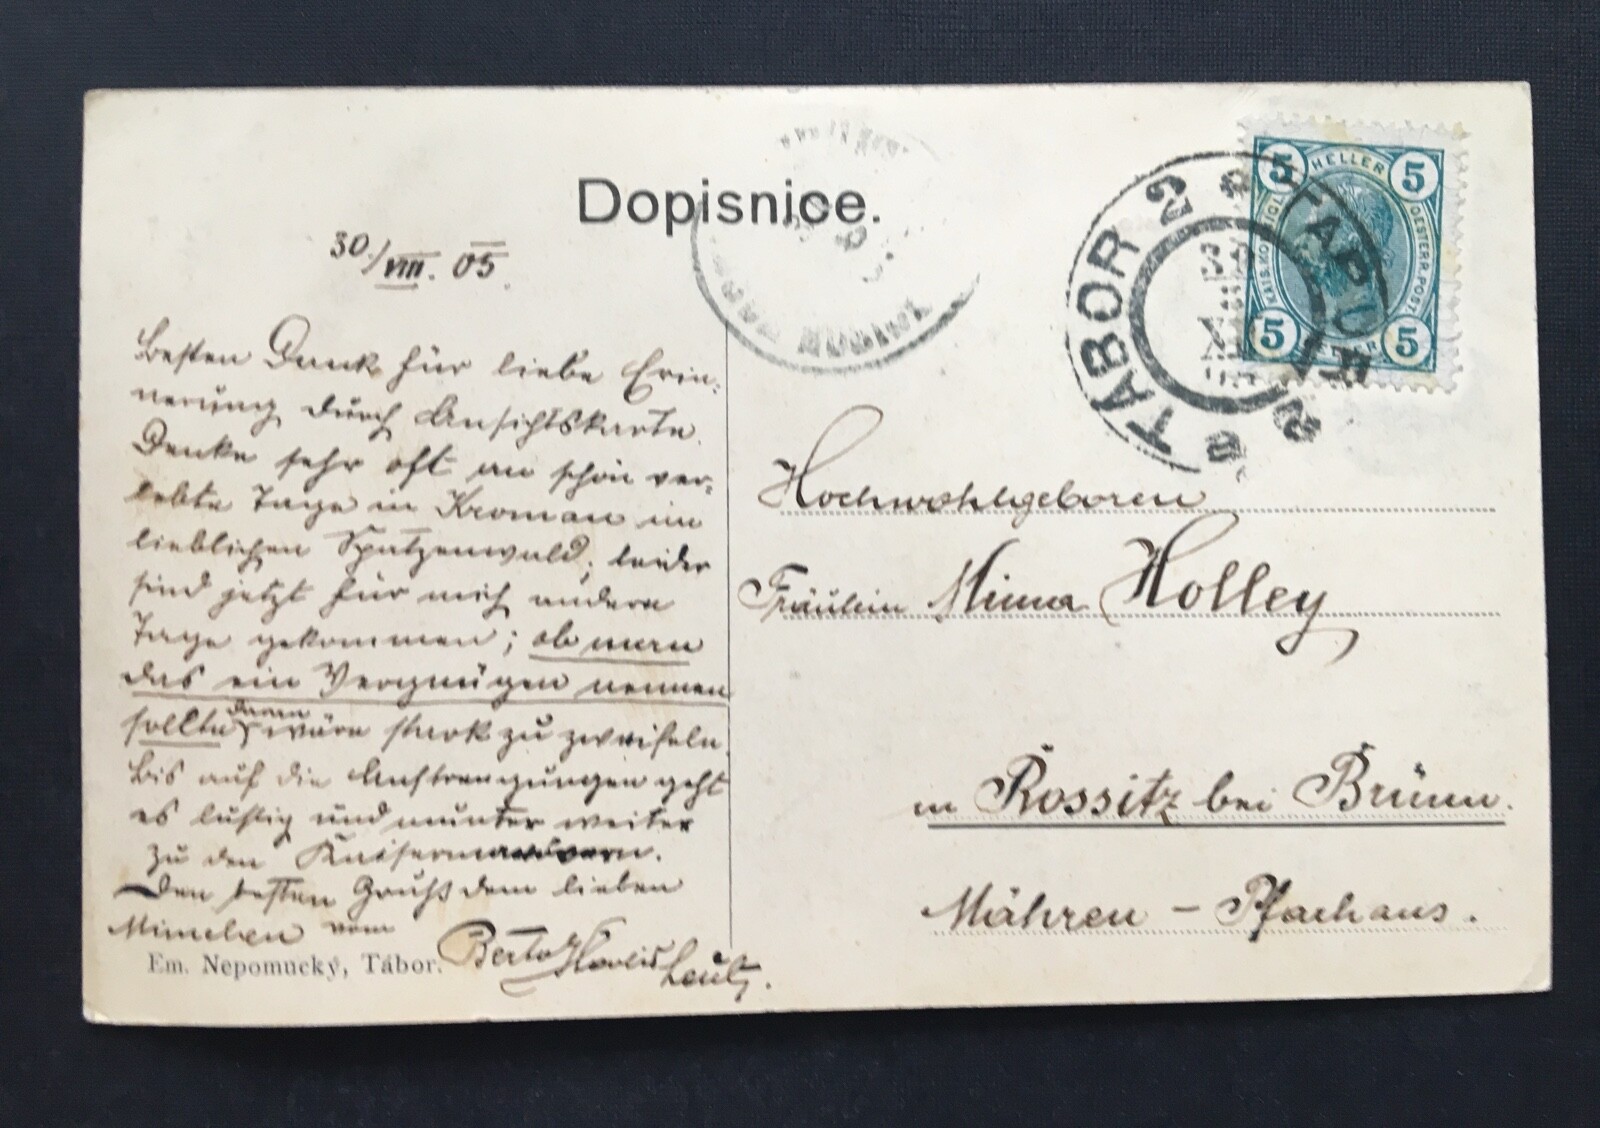 Dopisnice.
30./VIII. 05.
Besten Dank für liebe Erin-
nerung durch Ansichtskarte.
Denke sehr oft an schön ver-
lebte Tage in Kroman im
lieblichen Spatzenwald; leider
sind jetzt für mich andere
Tage gekommen; ob man
das ein Vergnügen nennen
sollte, daran wäre stark zu zweifeln.
Bis auf die Anstrengungen geht
es lustig und munter weiter
zu den Kaisermanövern.
Den besten Gruß dem lieben
Mimchen vom
Berto
Em. Nepomucký, Tábor.
TABOR 2
TÁBOR
5 HELLER 5
KAIS. KÖNIGL. OESTERR. POST
5 HELLER 5
Hochwohlgeboren
Fräulein Mima Holley
in Rossitz bei Brünn.
Mähren - Pfarhaus.